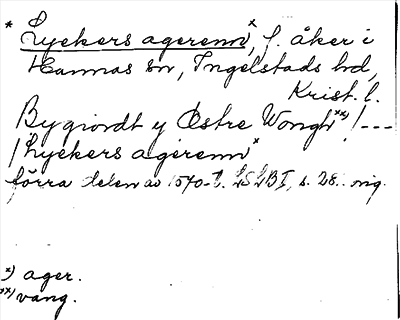 * Lyekers agerenn x, f. åker i
Hannas sn, Ingelstads hd,
Krist. l.
Bygiordt y Østre Wongh xx) / ---
/ Lyekers agerenn x
förra delen av 1570-t. LSLB I, s. 28. 
x) ager.
xx) vang.